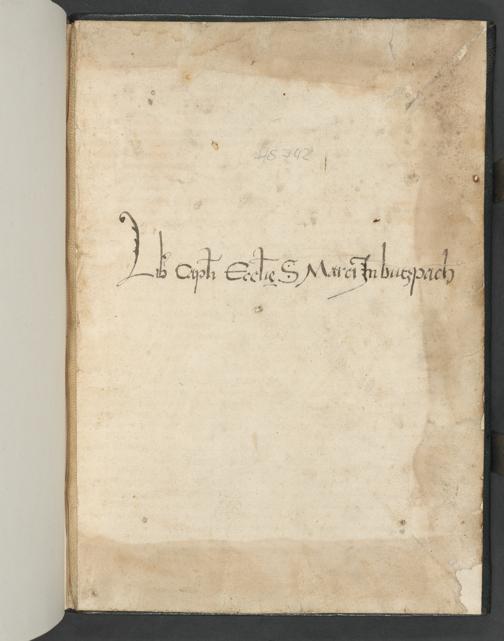 HS 742
Lib Capli Ecclie S Marci In butzpach